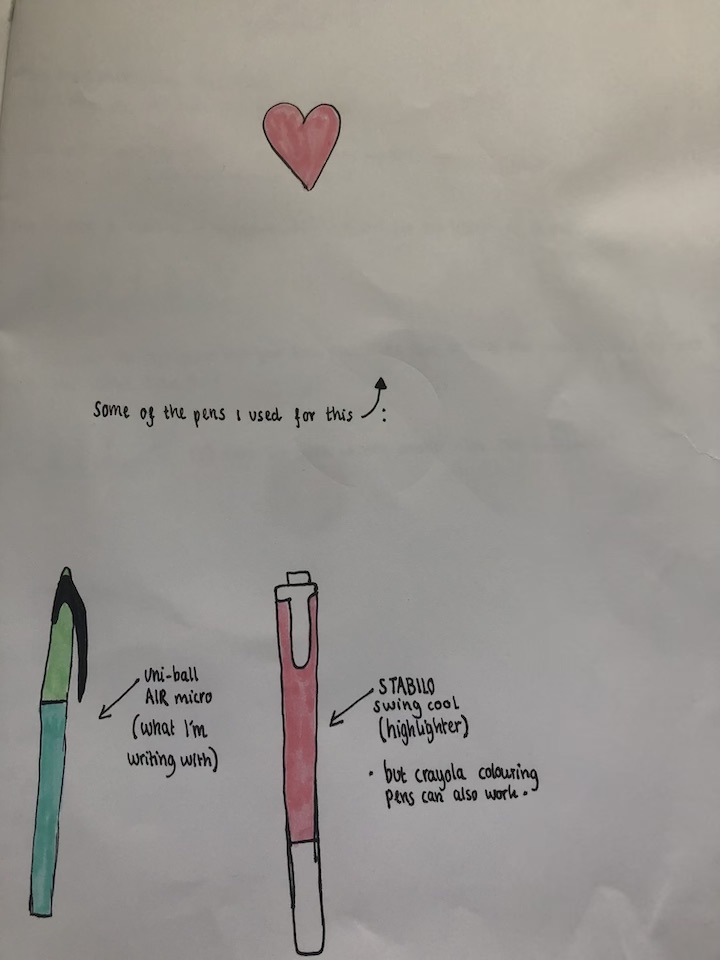 Some of the pens I used for this :
uni-ball
AIR micro
(what I'm
writing with)
STABILO
swing cool
(highlighter)
• but crayola colouring
pens can also work.